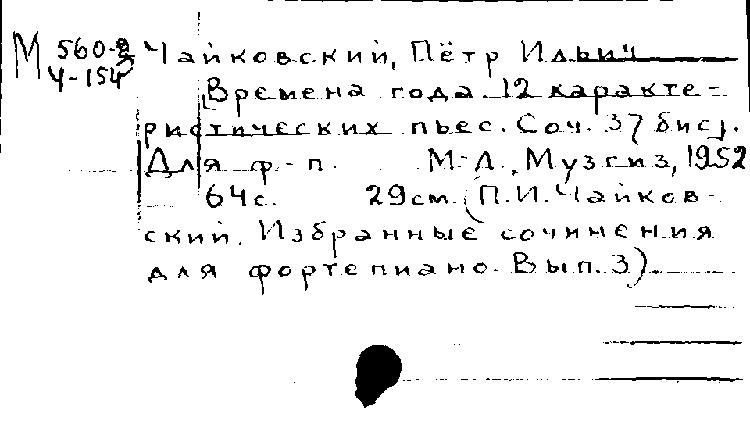 М 560-2/5 Чайковский, Пётр Ильич
Ч-154
[Времена года. 12 характе-
ристических пьес. Соч. 37 бис].
Для ф-п. М-Л., Музгиз, 1952
64с. 29см. (П.И.Чайков-
ский. Избранные сочинения
для фортепиано. Вып. 3).